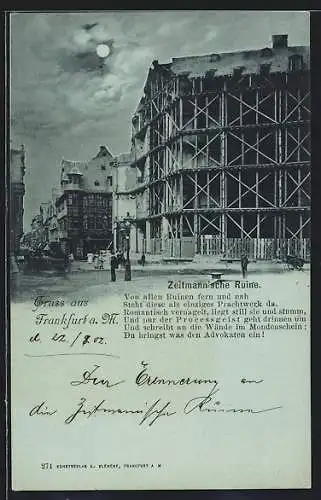 Zeitmann'sche Ruine.
Von allen Ruinen fern und nah
Steht diese als einziges Prachtwerk da.
Romantisch vernagelt, liegt still sie und stumm,
Und nur der Processgeist geht drinnen um
Und schreibt an die Wände im Mondenschein:
Du bringst was den Advokaten ein!
Gruss aus
Frankfurt a. M.
d. 22./9.02.
Zur Erinnerung an
die Zeitmännische Ruine
271 KUNSTVERLAG
FRANKFURT A M